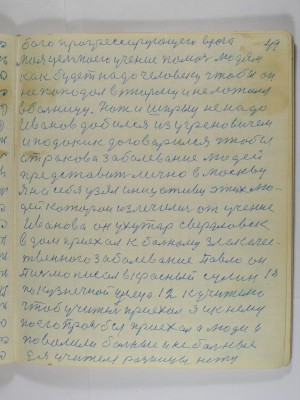 бого прогрессирующего врага 49
моя целиного учение помоч людям
как будет надо человеку чтобы он
не попадол в тюрму и не ложился
в больницу. Нож и шприц не надо
Иванов добился из
и подокик договорился чтобы
от ракова заболевание людей
представит лично в москву
Я на себя узял инициативу этих лю-
дей которои излечилис от учение
Иванова он у хутар свердловск
в дом приехал к больному злокачес-
твенного заболевание Павло он
писмо писал в Красный сулин 13
по кузнечной улецы 12 к учителю
чтоб учител приехал я ик нему
по его прозбе приехал а люди и
повалили больные и не больные
для учителя разницы нету